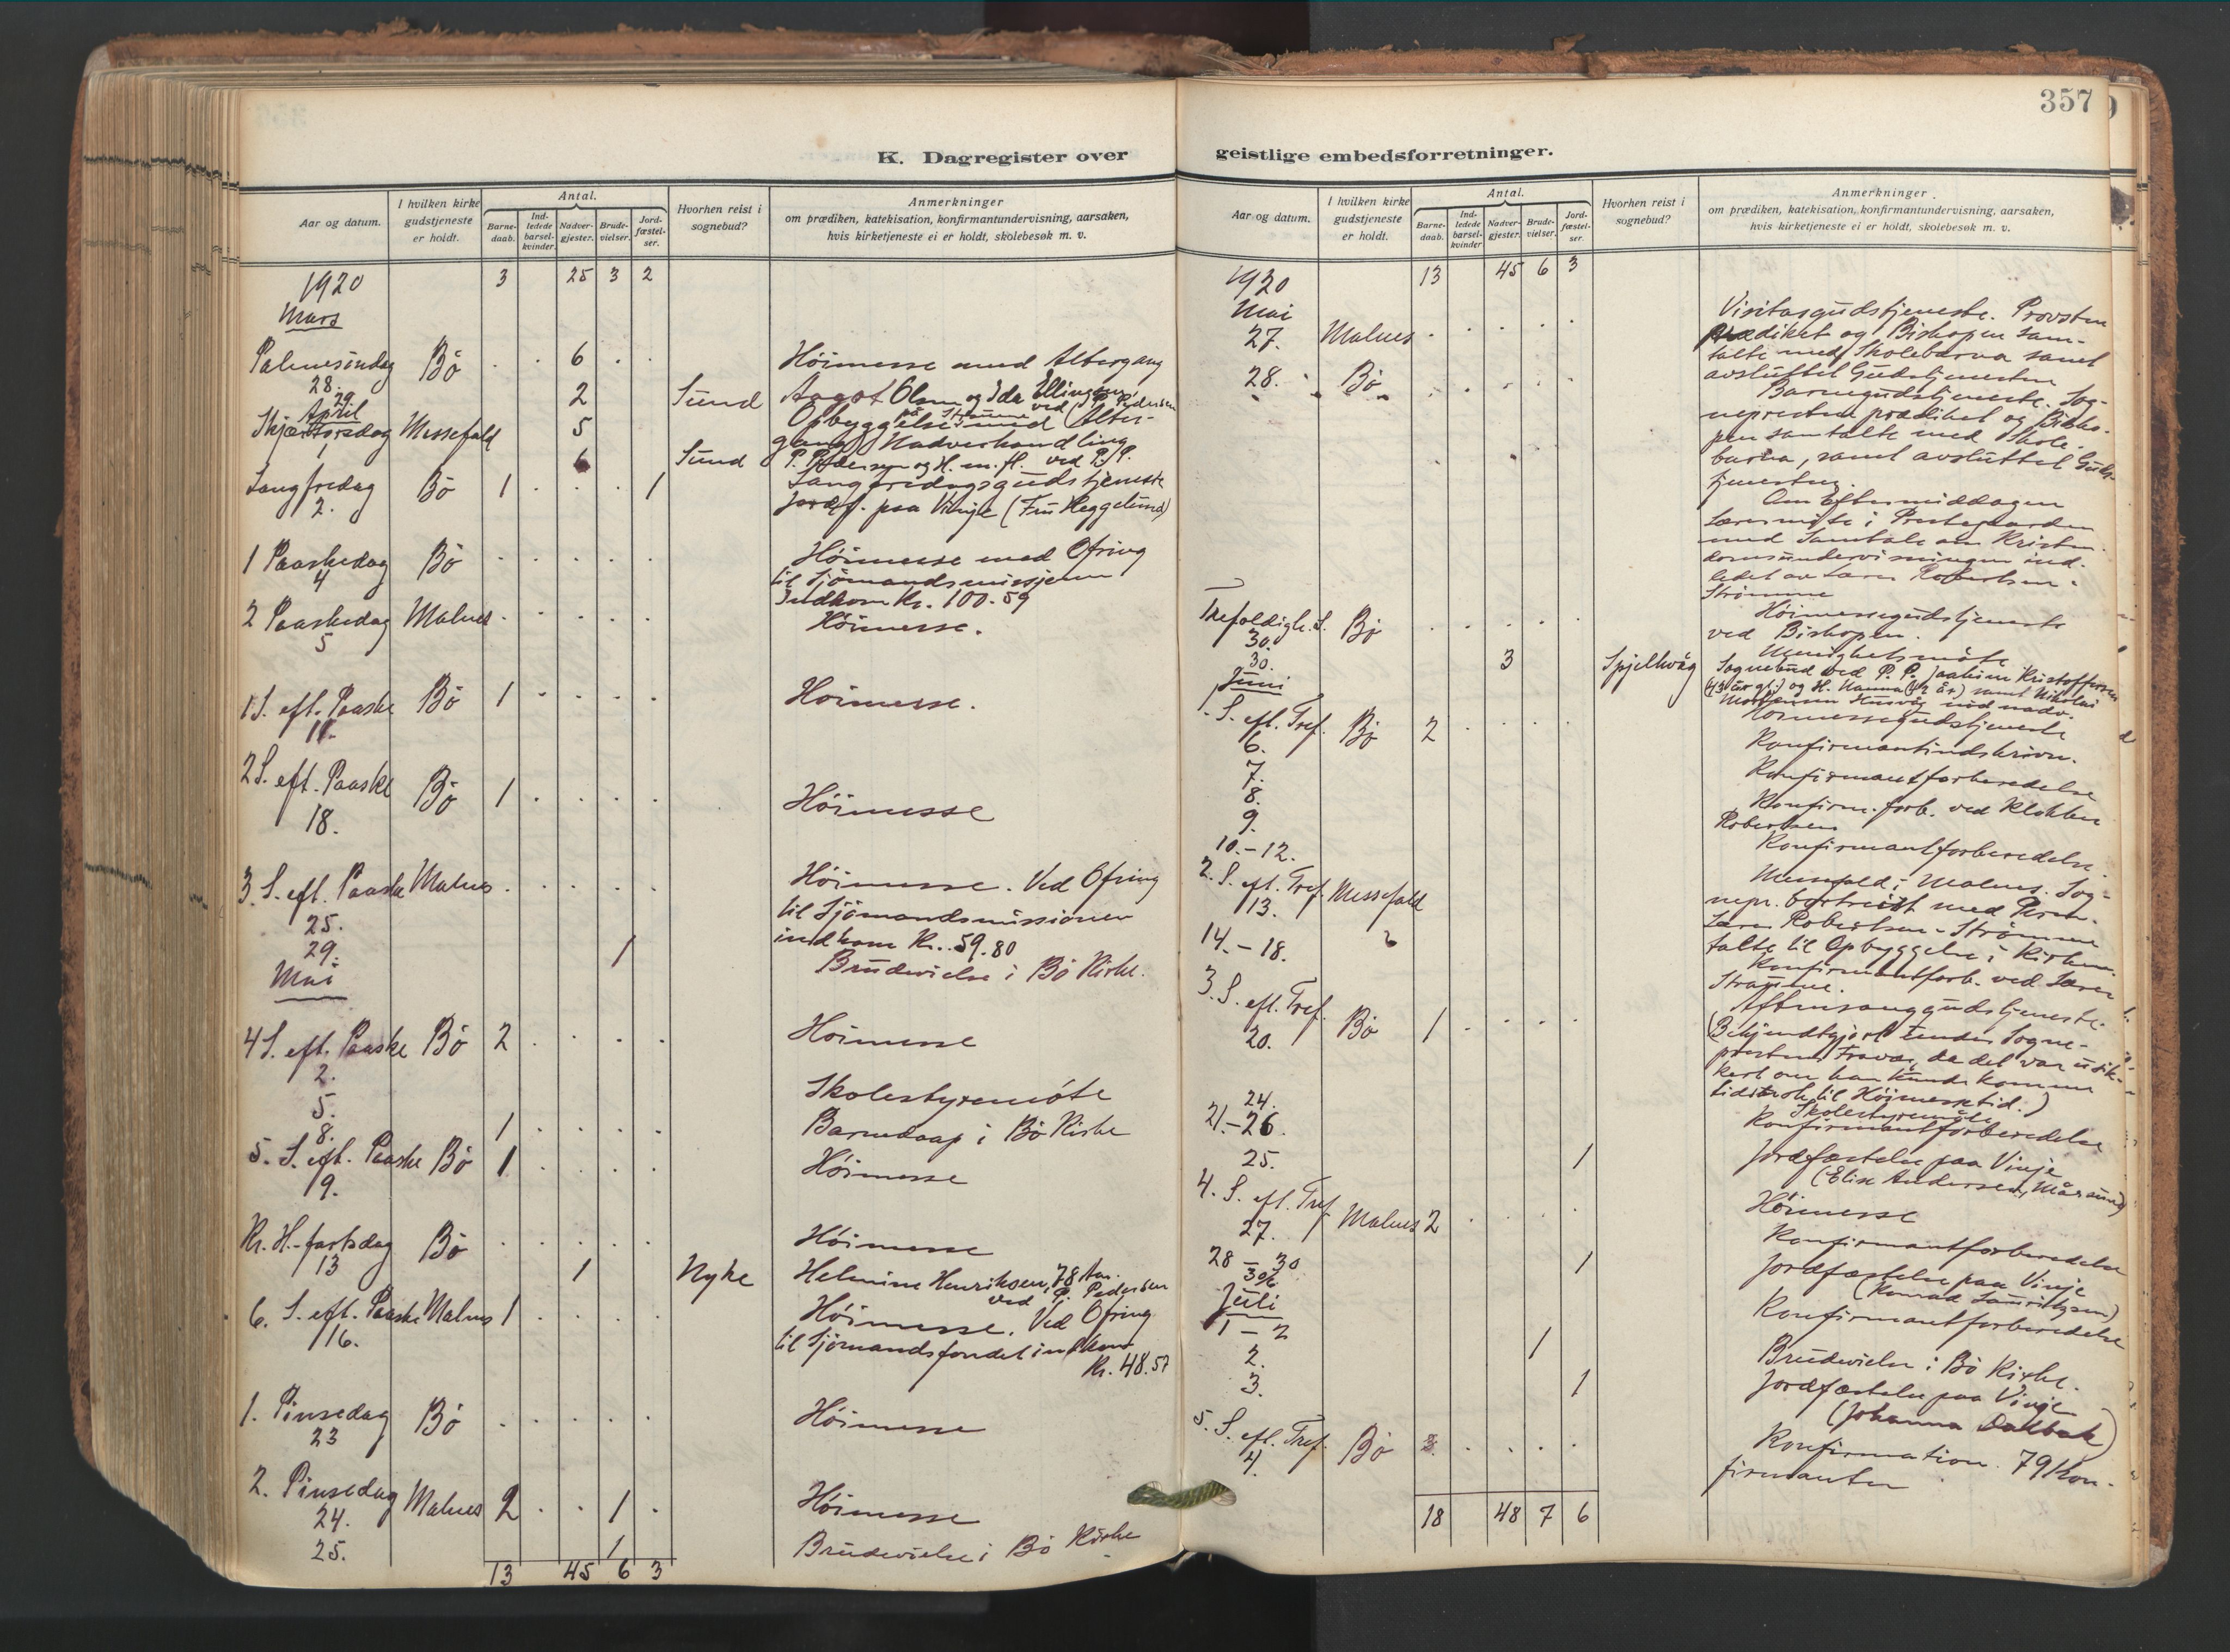 357
K. Dagregister over
Aar og datum. I hvilken kirke gudstjeneste er holdt. Antal. Barnedaab. Indledede barselkvinder. Nadvergjester. Brudevielser. Jordfæstelser. Hvorhen reist i sognebud? Anmerkninger om prædiken, katekisation, konfirmantundervisning, aarsaken, hvis kirketjeneste ei er holdt, skolebesøk m. v.
1920 3 25 3 2
Mars
Palmesöndag Bö . . 6 . . Höimesse med Altergang
28.
29. 2 Sund Aagot Olsen og Ida Ellingsen
ved P. Pedersen
April
Skjærtorsdag Messefald 5 Opbyggelse på Straume med Alter-
1 gang Nadverhandling
6 Sund P. Pedersen og H. m. fl. ved P. P.
Langfredag Bö 1 . . . 1 Langfredagsgudstjeneste
2. Jordf. paa Vinje (Fru Heggelund)
1 Paaskedag Bö . . . . . Höimesse med Ofring
4 til Sjömandsmissjonen
Indkom Kr. 100.59
2 Paaskedag Malnes . . . . . Höimesse.
5
1 S. eft. Paaske Bö 1 . . . . Höimesse.
11.
2 S. eft. Paaske Bö 1 . . . . Höimesse
18.
3. S. eft. Paaske Malnes . . . . . Höimesse. Ved Ofring
25. til Sjömandsmissionen
indkom Kr. 59.80
29. 1 Brudevielse i Bö Kirke.
Mai
4 S. eft. Paaske Bö 2 . . . . Höimesse
2.
5. Skolestyremöte
8. 1 . . . . Barnedaap i Bö Kirke
5. S. eft. Paaske Bö 1 . . . . Höimesse
9.
Kr. H.-fartsdag Bö . . . . . Höimesse
13 1 Nyke Helmine Henriksen, 78 Aar.
ved P. Pedersen
6. S. eft. Paaske Malnes 1 . . . . Höimesse. Ved Ofring
16. til Sjömandsfondet indkom
Kr. 48.57
1. Pinsedag Bö . . . . . Höimesse
23
2. Pinsedag Malnes 2 . . 1 . Höimesse
24.
25. 1 Brudevielse i Bö Kirke
13 45 6 3
geistlige embedsforretninger.
Aar og datum. I hvilken kirke gudstjeneste er holdt. Antal. Barnedaab. Indledede barselkvinder Nadvergjester. Brudevielser. Jordfæstelser. Hvorhen reist i sognebud? Anmerkninger om prædiken, katekisation, konfirmantundervisning, aarsaken, hvis kirketjeneste ei er holdt, skolebesøk m. v.
1920 13 45 6 3
Mai
27. Malnes . . . . . Visitasgudstjeneste. Provsten
prædiket og Bishopen sam-
talte med Skolebarna samt
avsluttet Gudstjenesten
28. Bö . . . . . Barnegudstjeneste. Sog-
nepresten prædiket og Bisko-
pen samtalte med Skole-
barna, samt avsluttet Guds-
tjenesten.
Om Eftermiddagen
Læremöte i Prestegaarden
med Samtale om Kristen-
domsundervisningen ind-
ledet av Lærer Robertsen-
Strömme
Trefoldigh. S. Bö . . . . . Höimessegudstjeneste
30. ved Bishopen.
Menighetsmöte
30. 3 Spjelkvåg Sognebud ved P. P. Joakim Kristoffersen
(43 år gl.) og H. Hanna (42 år) samt Nikolai
Mortensen Husvåg med nadv.
Juni
1. S. eft. Tref. Bö 2 . . . . Höimessegudstjeneste
6.
7. Konfirmantindskrivn.
8. Konfirmantforberedelse
9. Konfirm. forb. ved Klokker
Robertsen
10.-12. Konfirmantforberedelse.
2. S. eft. Tref. Messefald Messefald i Malnes. Sog-
13. nepr. bortreist med Perm.
Lærer Robertsen-Strömme
talte til Opbyggelse i Kirken.
14.-18. Konfirmantforb. ved Lærer
Straume.
3. S. eft. Tref. Bö 1 . . . . Aftensanggudstjeneste.
20. (Bekjendtgjort under Sogne-
prestens Fravær, da det var usik-
kert om han kunde komme
tidsnok til Höimessetid.)
24. Skolestyremöte
21.-26. Konfirmantforberedelse
25. 1 Jordfæstelse paa Vinje
(Elise Andersen, Mårsund)
4. S. eft. Tref. Malnes 2 . . . . Höimesse
27.
28-30 Konfirmantforberedelse
30/6 1 Jordfæstelse paa Vinje
(Konrad Lauritzsen)
Juli
1-2 Konfirmantforberedelse
2. 1 Brudevielse i Bö Kirke.
3. 1 Jordfæstelse paa Vinje
(Johanna Dalbak)
5. S. eft. Tref. Bö . . . . Konfirmation. 79 Kon-
4. firmanter
18 48 7 6